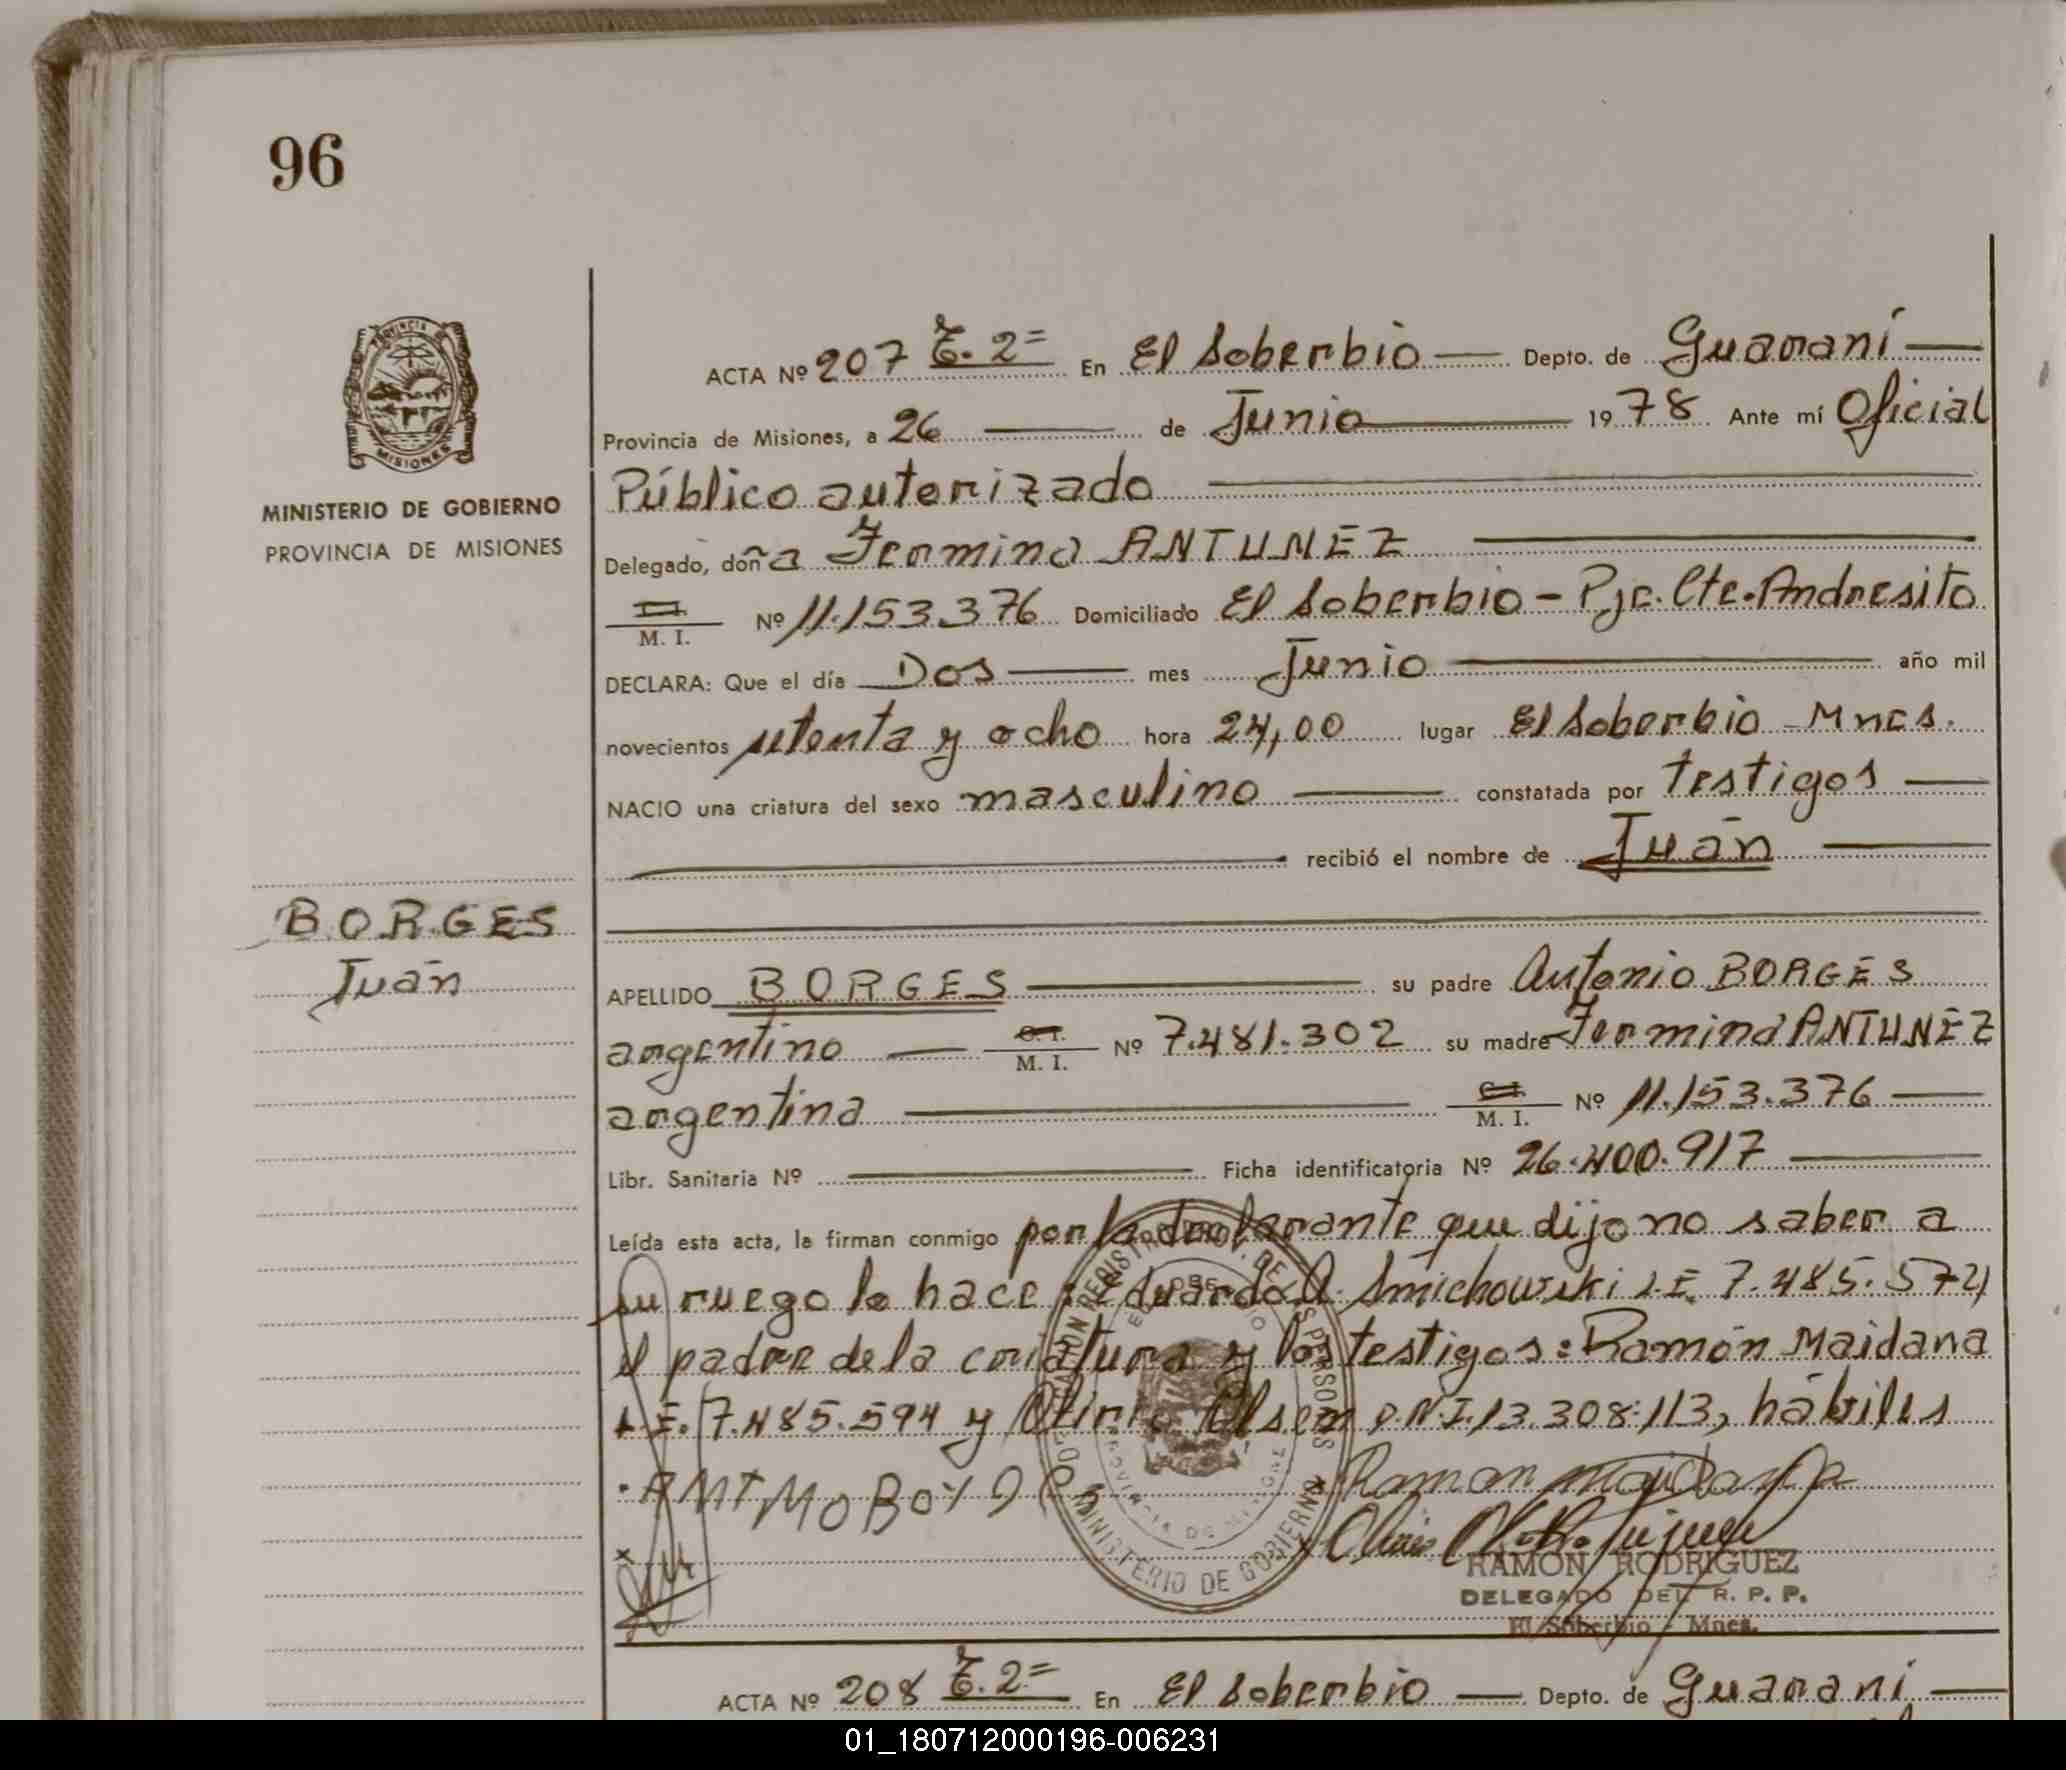 96
PROVINCIA DE
MISIONES
MINISTERIO DE GOBIERNO
PROVINCIA DE MISIONES
ACTA Nº 207 T. 2= En El Soberbio — Depto. de Guaraní —
Provincia de Misiones, a 26 — de Junio — 1978 Ante mí Oficial
Público autorizado
Delegado, doña Fermina ANTUNEZ
M. I. Nº 11.153.376 Domiciliado El Soberbio - Pje. Cte. Andresito
DECLARA: Que el día Dos — mes Junio — año mil
novecientos setenta y ocho hora 24,00 lugar El Soberbio - Mnes.
NACIO una criatura del sexo masculino — constatada por testigos —
recibió el nombre de Juan —
BORGES
Juan
APELLIDO BORGES — su padre Antonio BORGES
argentino — C. I. M. I. Nº 7.481.302 su madre Fermina ANTUNEZ
argentina — C. I. M. I. Nº 11.153.376 —
Libr. Sanitaria Nº — Ficha identificatoria Nº 26.400.917 —
Leída esta acta, la firman conmigo por la declarante que dijo no saber a
su ruego lo hace: Eduardo A. Smichowski L.E. 7.485.572,
el padre de la criatura y los testigos: Ramón Maidana
L.E. 7.485.594 y Olirio Olsem D.N.I. 13.308.113, hábiles
Ramon Maidana
RAMON RODRIGUEZ
DELEGADO DEL R. P. P.
El Soberbio - Mnes.
MINISTERIO DE GOBIERNO
PROVINCIA DE MISIONES
ACTA Nº 208 T. 2= En El Soberbio — Depto. de Guaraní —
01_180712000196-006231